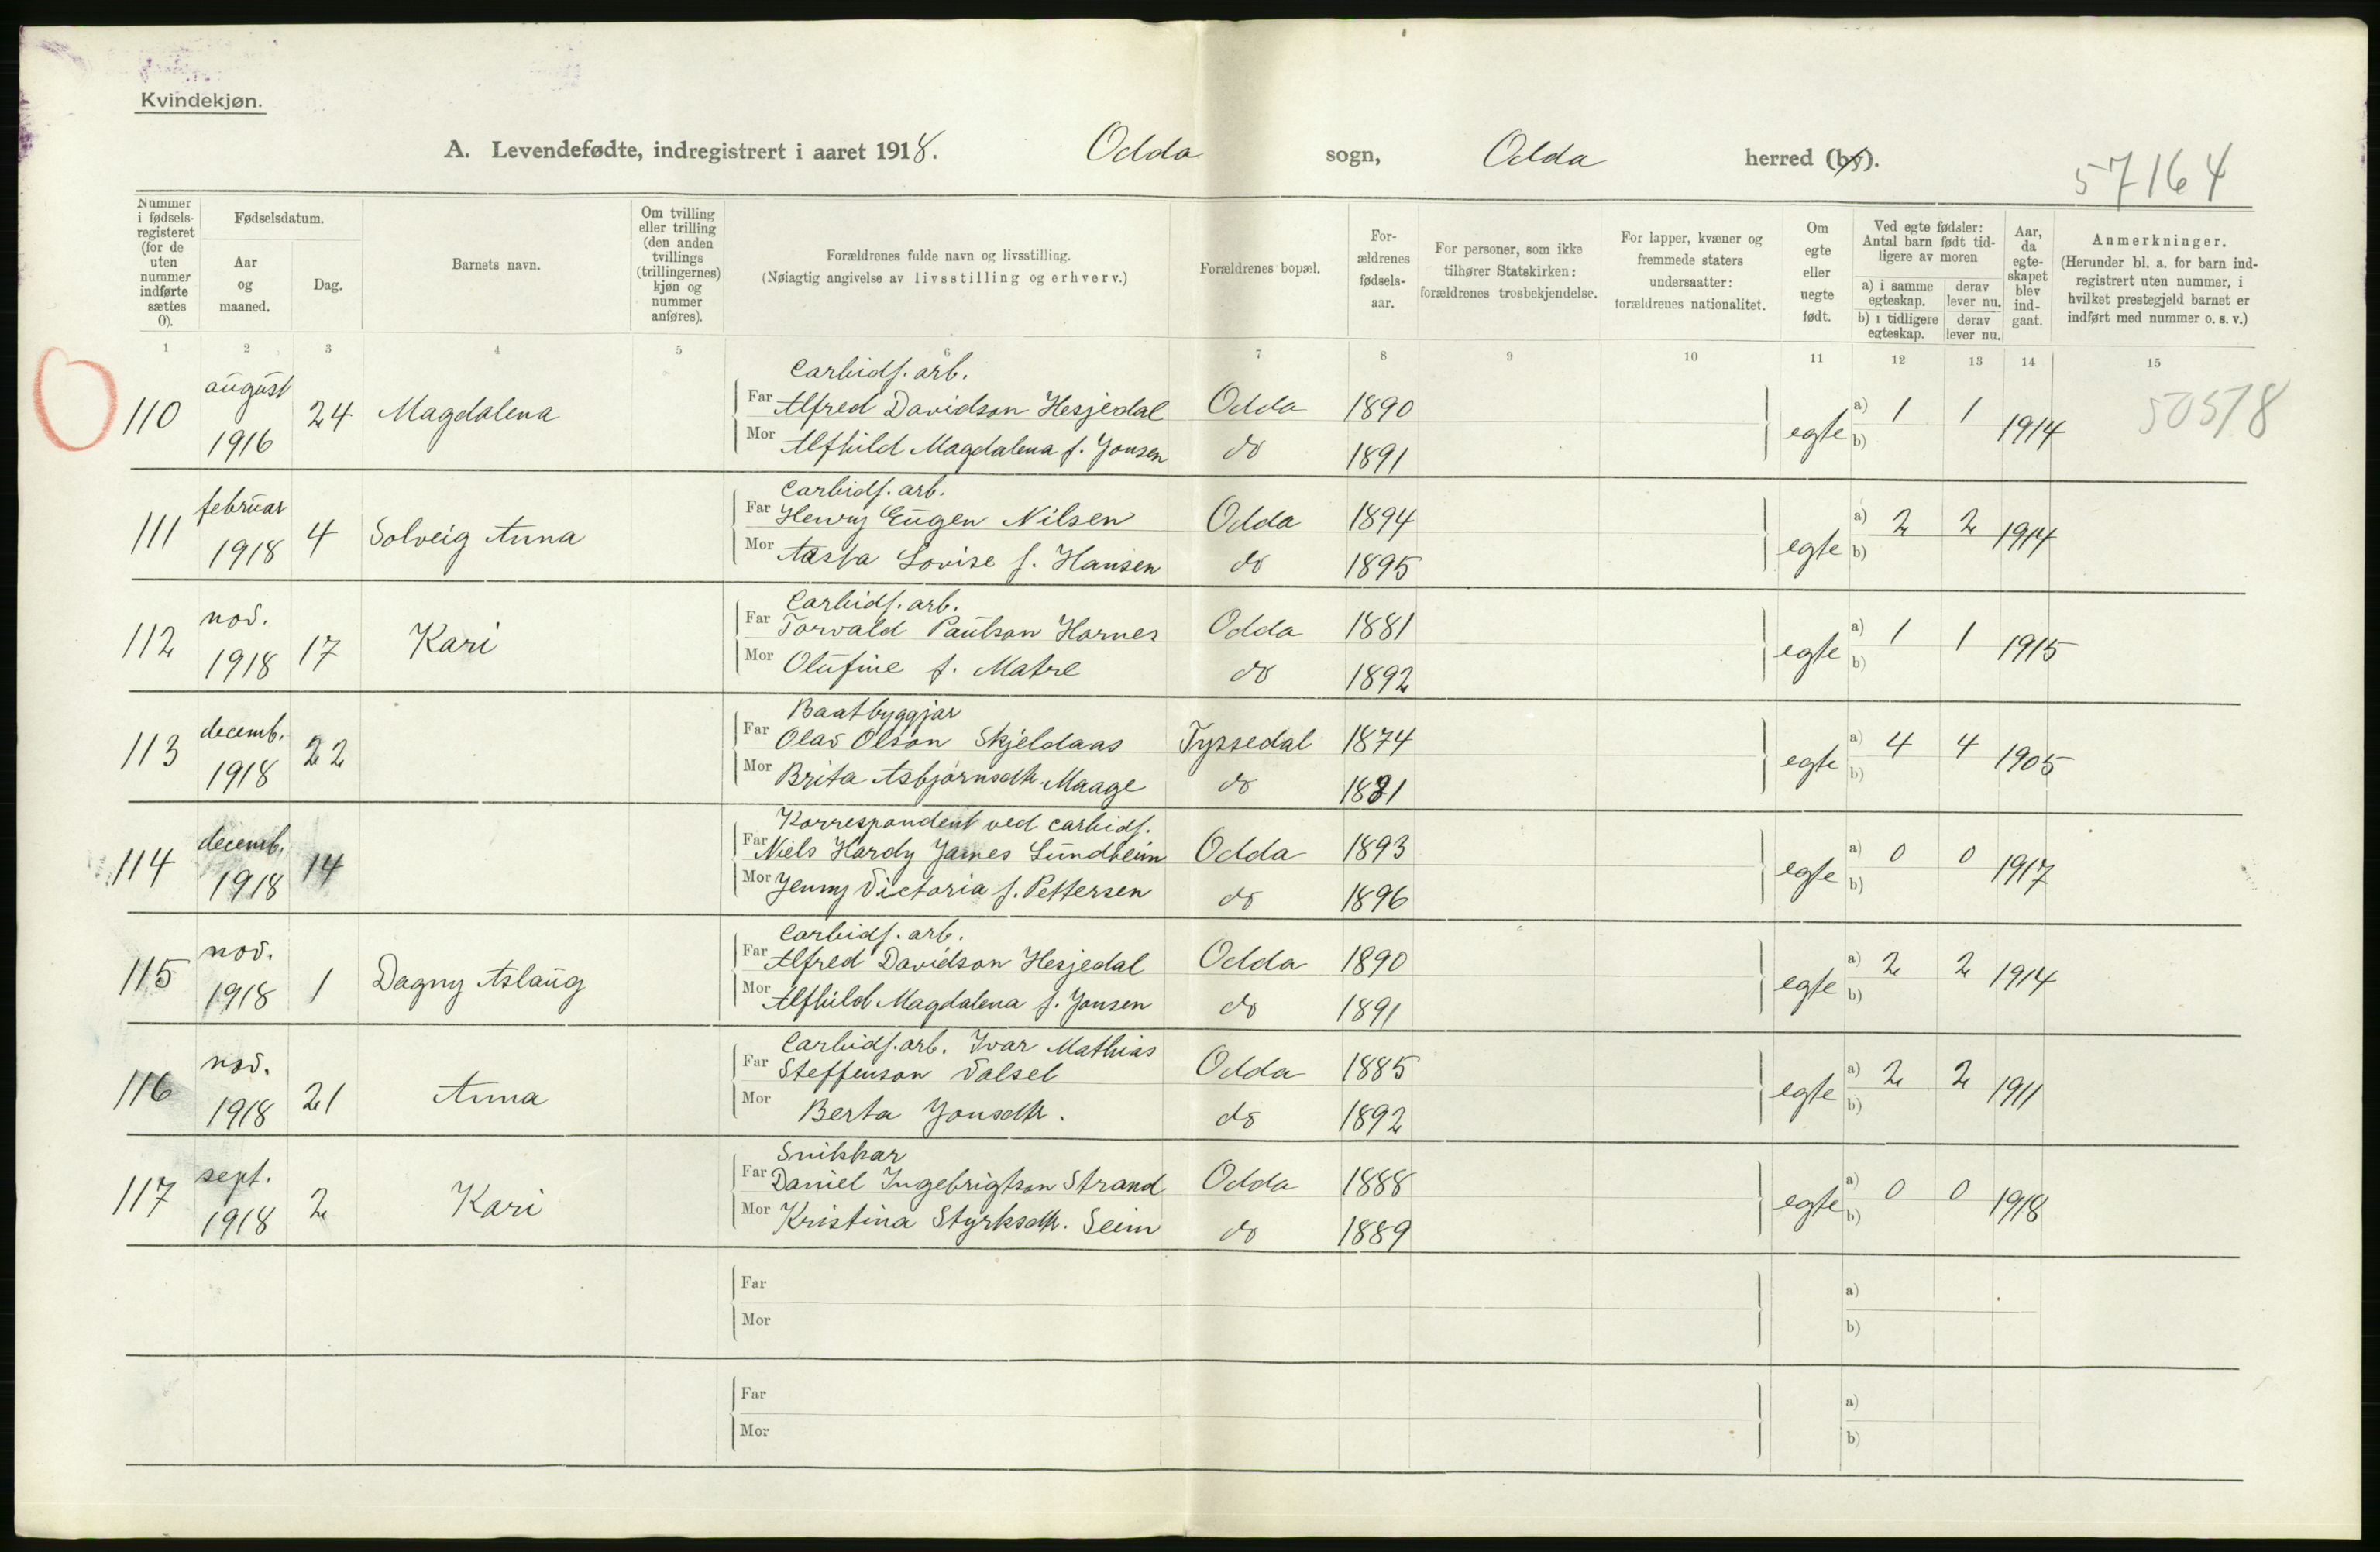 Kvindekjøn.
A. Levendefødte, indregistrert i aaret 1918. Odda sogn, Odda herred (by).
57164
Nummer i fødsels-registeret (for de uten nummer indførte sættes 0).
Fødselsdatum.
Aar og maaned.
Dag.
Barnets navn.
Om tvilling eller trilling (den anden tvillings (trillingernes) kjøn og nummer anføres).
Forældrenes fulde navn og livsstilling.
(Nøiagtig angivelse av livsstilling og erhverv.)
Forældrenes bopæl.
For-ældrenes fødsels-aar.
For personer, som ikke tilhører Statskirken: forældrenes trosbekjendelse.
For lapper, kvæner og fremmede staters undersaatter: forældrenes nationalitet.
Om egte eller uegte født.
Ved egte fødsler: Antal barn født tid-ligere av moren
a) i samme egteskap. derav lever nu.
b) i tidligere egteskap. derav lever nu.
Aar, da egte-skapet blev ind-gaat.
Anmerkninger.
(Herunder bl. a. for barn ind-registrert uten nummer, i hvilket prestegjeld barnet er indført med nummer o. s. v.)
1 2 3 4 5 6 7 8 9 10 11 12 13 14 15
Carbidf. arb.
110 august 1916 24 Magdalena Far Alfred Davidson Hesjedal Odda 1890 egte a) 1 1 1914 50518
Mor Alfhild Magdalena f. Jonsen do 1891 b)
Carbidf. arb.
111 februar 1918 4 Solveig Anna Far Henry Eugen Nilsen Odda 1894 egte a) 2 2 1914
Mor Aasta Lovise f. Hansen do 1895 b)
Carbidf. arb.
112 nov. 1918 17 Kari Far Torvald Paulson Hornes Odda 1881 egte a) 1 1 1915
Mor Olufine f. Matre do 1892 b)
Baatbyggjar
113 decemb. 1918 22 Far Olav Olson Skjeldaas Tyssedal 1874 egte a) 4 4 1905
Mor Brita Asbjørnsdtr. Maage do 1881 b)
Korrespondent ved carbidf.
114 decemb. 1918 14 Far Niels Hardy James Lundheim Odda 1893 egte a) 0 0 1917
Mor Jenny Victoria f. Pettersen do 1896 b)
Carbidf. arb.
115 nov. 1918 1 Dagny Aslaug Far Alfred Davidson Hesjedal Odda 1890 egte a) 2 2 1914
Mor Alfhild Magdalena f. Jonsen do 1891 b)
Carbidf. arb. Ivar Mathias
116 nov. 1918 21 Anna Far Steffenson Valset Odda 1885 egte a) 2 2 1911
Mor Berta Jonsdtr. do 1892 b)
Snikkar
117 sept. 1918 2 Kari Far Daniel Ingebrigtson Strand Odda 1888 egte a) 0 0 1918
Mor Kristina Styrksdtr. Seim do 1889 b)
Far a)
Mor b)
Far a)
Mor b)